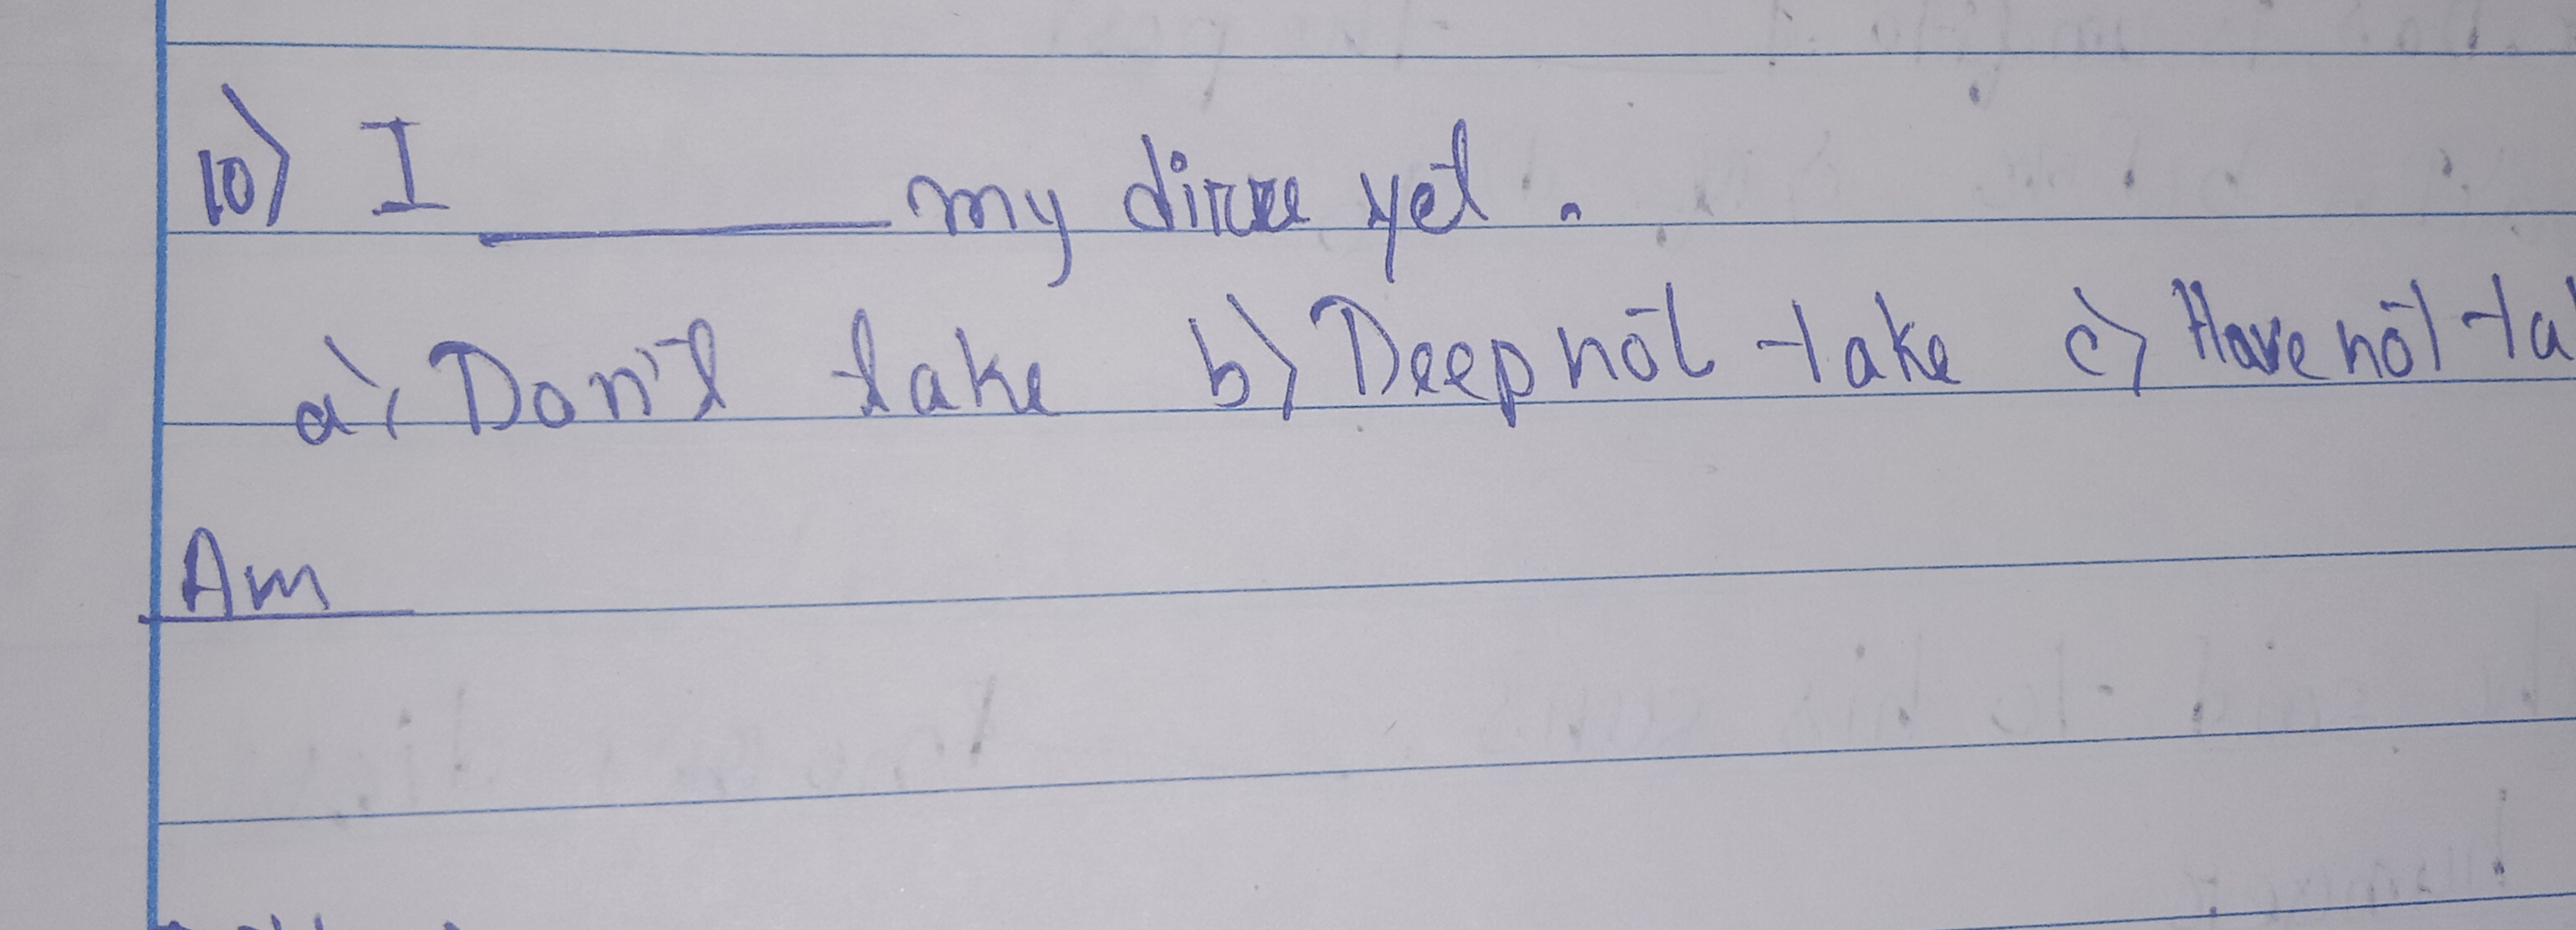 10) I ________ my dinne yet.
a) Don't take b) Deep not take c) Have not ta
Am